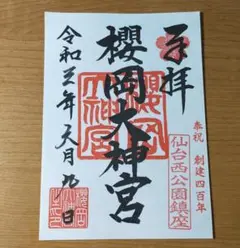 奉祝 創建四百年
奉拝
仙台西公園鎮座
櫻岡大神宮
櫻岡
大神宮
令和三年六月九日